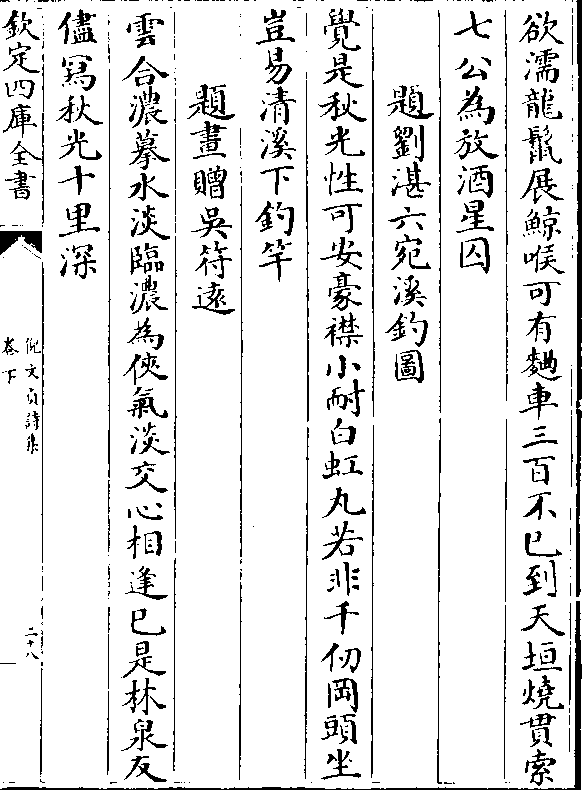 欲濡龍鬛展鯨喉可有麹車三百不已到天垣燒貫索
七公為放酒星囚
題劉湛六宛溪釣圖
覺是秋光性可安豪襟小耐白虹丸若非千仞岡頭坐
豈易清溪下釣竿
題畫贈吳符遠
雲合濃摹水淡臨濃為俠氣淡交心相逢已是林泉友
儘冩秋光十里深
欽定四庫全書
倪文貞詩集
卷下
二十八